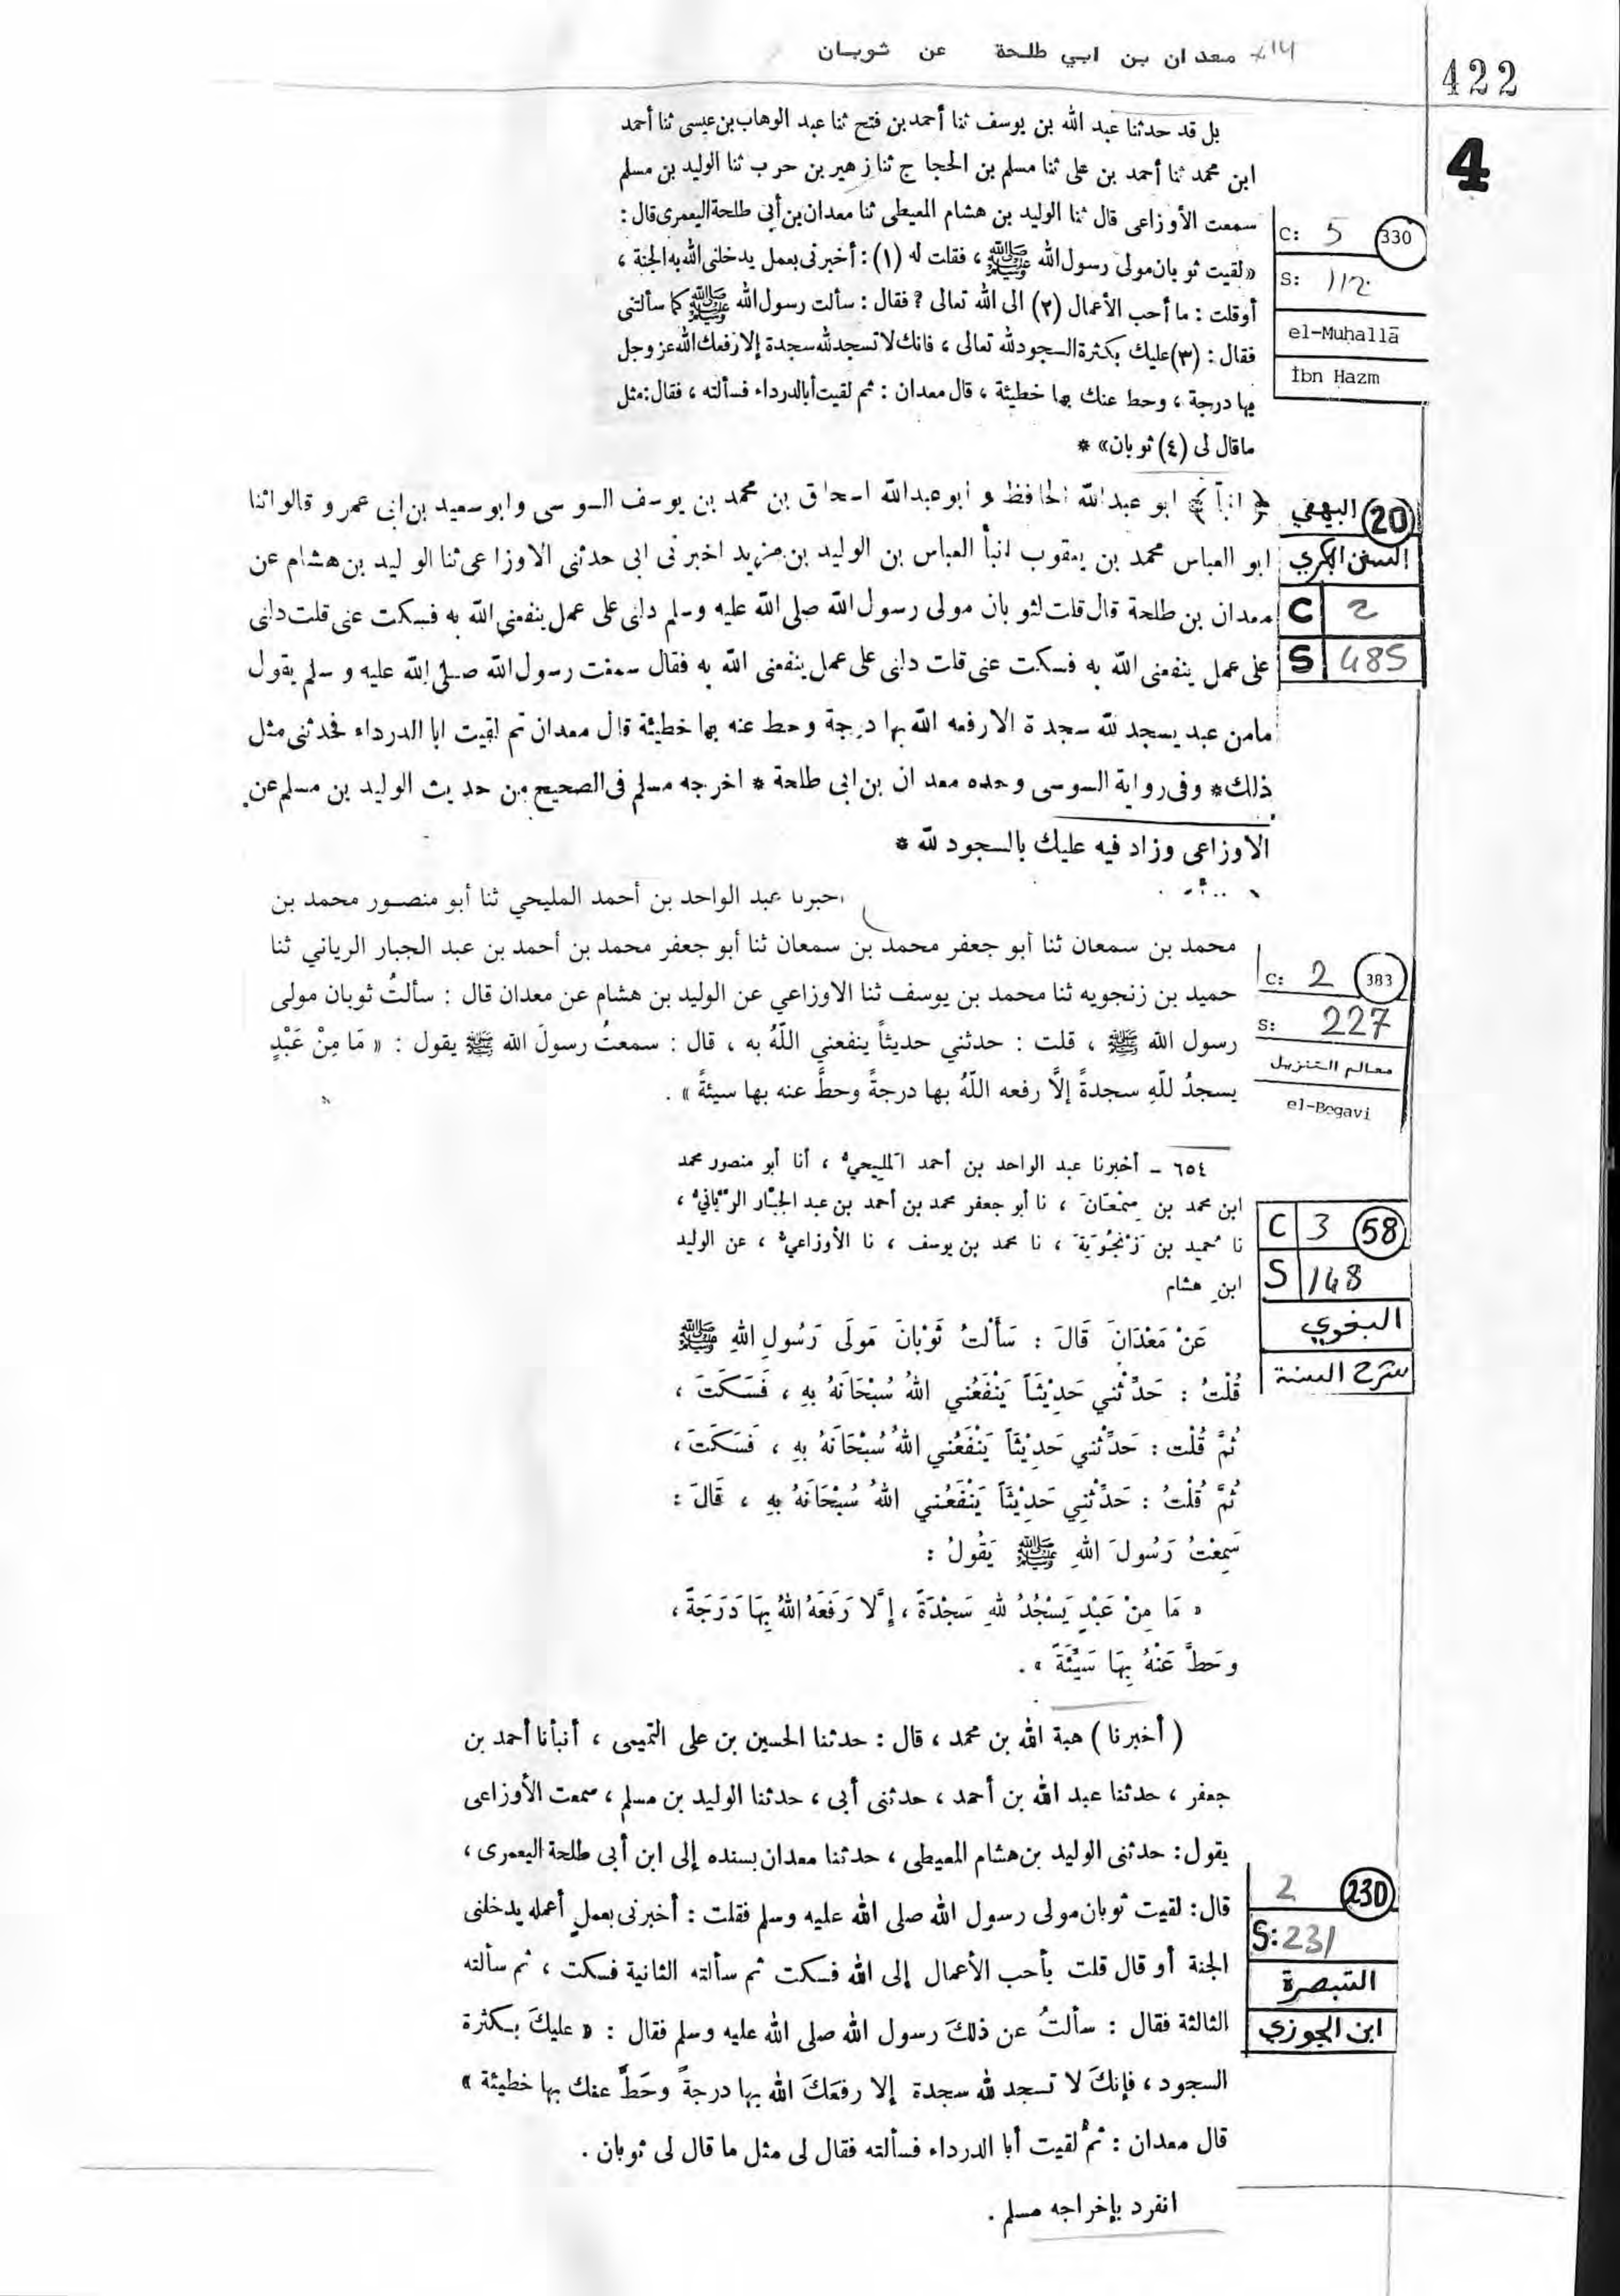 معدان بن ابي طلحة عن ثوبان
422
4
بل قد حدثنا عبد الله بن يوسف ثنا أحمد بن فتح ثنا عبد الوهاب بن عيسى ثنا أحمد
ابن محمد ثنا أحمد بن على ثنا مسلم بن الحجاج ثنا زهير بن حرب ثنا الوليد بن مسلم
سمعت الأوزاعى قال ثنا الوليد بن هشام المعيطى ثنا معدان بن أبى طلحة اليعمرى قال :
«لقيت ثوبان مولى رسول الله ﷺ ، فقلت له (١) : أخبرنى بعمل يدخلنى الله به الجنة ،
أوقلت : ما أحب الأعمال (٢) الى الله تعالى ? فقال : سألت رسول الله ﷺ كما سألتنى
فقال : (٣) عليك بكثرة السجود لله تعالى ، فانك لا تسجد لله سجدة إلا رفعك الله عز وجل
بها درجة ، وحط عنك بها خطيئة ، قال معدان : ثم لقيت أبا الدرداء فسألته ، فقال : مثل
ماقال لى (٤) ثوبان» *
C: 5 330
S: 112
el-Muḥallā
İbn Hazm
﴿ انبأ ﴾ ابو عبدالله الحافظ و ابوعبدالله اسحاق بن محمد بن يوسف السوسى وابو سعيد بن ابى عمرو قالوا ثنا
ابو العباس محمد بن يعقوب انبأ العباس بن الوليد بن مزيد اخبرنى ابى حدثنى الاوزاعى ثنا الوليد بن هشام عن
معدان بن طلحة قال قلت لثوبان مولى رسول الله صلى الله عليه وسلم دلنى على عمل ينفعنى الله به فسكت عنى قلت دلنى
على عمل ينفعنى الله به فسكت عنى قلت دلنى على عمل ينفعنى الله به فقال سمعت رسول الله صلى الله عليه وسلم يقول
مامن عبد يسجد لله سجدة الا رفعه الله بها درجة وحط عنه بها خطيئة قال معدان ثم لقيت ابا الدرداء فحدثنى مثل
ذلك * وفى رواية السوسى وحده معدان بن ابى طلحة * اخرجه مسلم فى الصحيح من حديث الوليد بن مسلم عن
الاوزاعى وزاد فيه عليك بالسجود لله *
البيهقي 20
السنن الكبرى
C 2
S 485
أخبرنا عبد الواحد بن أحمد المليحي ثنا أبو منصور محمد بن
محمد بن سمعان ثنا أبو جعفر محمد بن سمعان ثنا أبو جعفر محمد بن أحمد بن عبد الجبار الرياني ثنا
حميد بن زنجويه ثنا محمد بن يوسف ثنا الاوزاعي عن الوليد بن هشام عن معدان قال : سألتُ ثوبان مولى
رسول الله ﷺ ، قلت : حدثني حديثاً ينفعني اللّهُ به ، قال : سمعتُ رسولَ الله ﷺ يقول : « مَا مِنْ عَبْدٍ
يسجدُ للّهِ سجدةً إلَّا رفعه اللّهُ بها درجةً وحطَّ عنه بها سيئةً » .
C: 2 383
S: 227
معالم التنزيل
el-Begavi
٦٥٤ – أخبرنا عبد الواحد بن أحمد المليحيُّ ، أنا أبو منصور محمد
ابن محمد بن سِمْعَانَ ، نا أبو جعفر محمد بن أحمد بن عبد الجبَّار الرَّيَّانيُّ ،
نا حُميد بن زَنْجُوَيَةَ ، نا محمد بن يوسف ، نا الأوزاعيُّ ، عن الوليد
ابنِ هشام
عَنْ مَعْدَانَ قَالَ : سَأَلْتُ ثَوْبَانَ مَولَى رَسُولِ اللهِ ﷺ
قُلْتُ : حَدِّثْني حَدِيْثَاً يَنْفَعُني اللهُ سُبْحَانَهُ بِهِ ، فَسَكَتَ ،
ثُمَّ قُلْت : حَدِّثْني حَدِيْثَاً يَنْفَعُني اللهُ سُبْحَانَهُ بِهِ ، فَسَكَتَ ،
ثُمَّ قُلْتُ : حَدِّثْنِي حَدِيْثَاً يَنْفَعُني اللهُ سُبْحَانَهُ بِهِ ، قَالَ :
سَمِعْتُ رَسُولَ اللهِ ﷺ يَقُولُ :
« مَا مِنْ عَبْدٍ يَسْجُدُ للهِ سَجْدَةً ، إِلَّا رَفَعَهُ اللهُ بِهَا دَرَجَةً ،
وحَطَّ عَنْهُ بِهَا سَيِّئَةً » .
C 3 58
S 148
البغوي
شرح السنة
( أخبرنا ) هبة الله بن محمد ، قال : حدثنا الحسين بن على التميمى ، أنبأنا أحمد بن
جعفر ، حدثنا عبد الله بن أحمد ، حدثنى أبى ، حدثنا الوليد بن مسلم ، سمعت الأوزاعى
يقول : حدثنى الوليد بن هشام المعيطى ، حدثنا معدان بسنده إلى ابن أبى طلحة اليعمرى ،
قال : لقيت ثوبان مولى رسول الله صلى الله عليه وسلم فقلت : أخبرنى بعملٍ أعمله يدخلنى
الجنة أو قال قلت بأحب الأعمال إلى الله فسكت ثم سألته الثانية فسكت ، ثم سألته
الثالثة فقال : سألتُ عن ذلكَ رسول الله صلى الله عليه وسلم فقال : « عليكَ بكثرة
السجود ، فإنكَ لا تسجد لله سجدة إلا رفعَكَ الله بها درجةً وحَطَّ عنك بها خطيئة »
قال معدان : ثمَّ لقيت أبا الدرداء فسألته فقال لى مثل ما قال لى ثوبان .
انفرد بإخراجه مسلم .
2 230
S: 231
التبصرة
ابن الجوزي